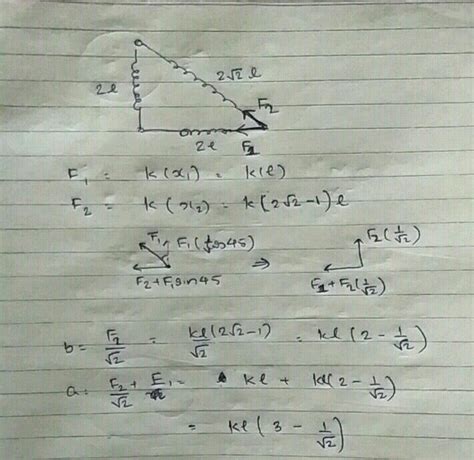 2ℓ
2√2 ℓ
F₂
F₁
2ℓ
F₁ = k(x₁) = k(ℓ)
F₂ = k(x₂) = k(2√2-1)ℓ
F₁ F₁(cos45)
F₂+F₁sin45
⇒
F₂(1/√2)
F₁+F₂(1/√2)
b = F₂/√2 = kℓ(2√2-1)/√2 = kℓ(2 - 1/√2)
a = F₂/√2 + F₁ = kℓ + kℓ(2 - 1/√2)
= kℓ(3 - 1/√2)